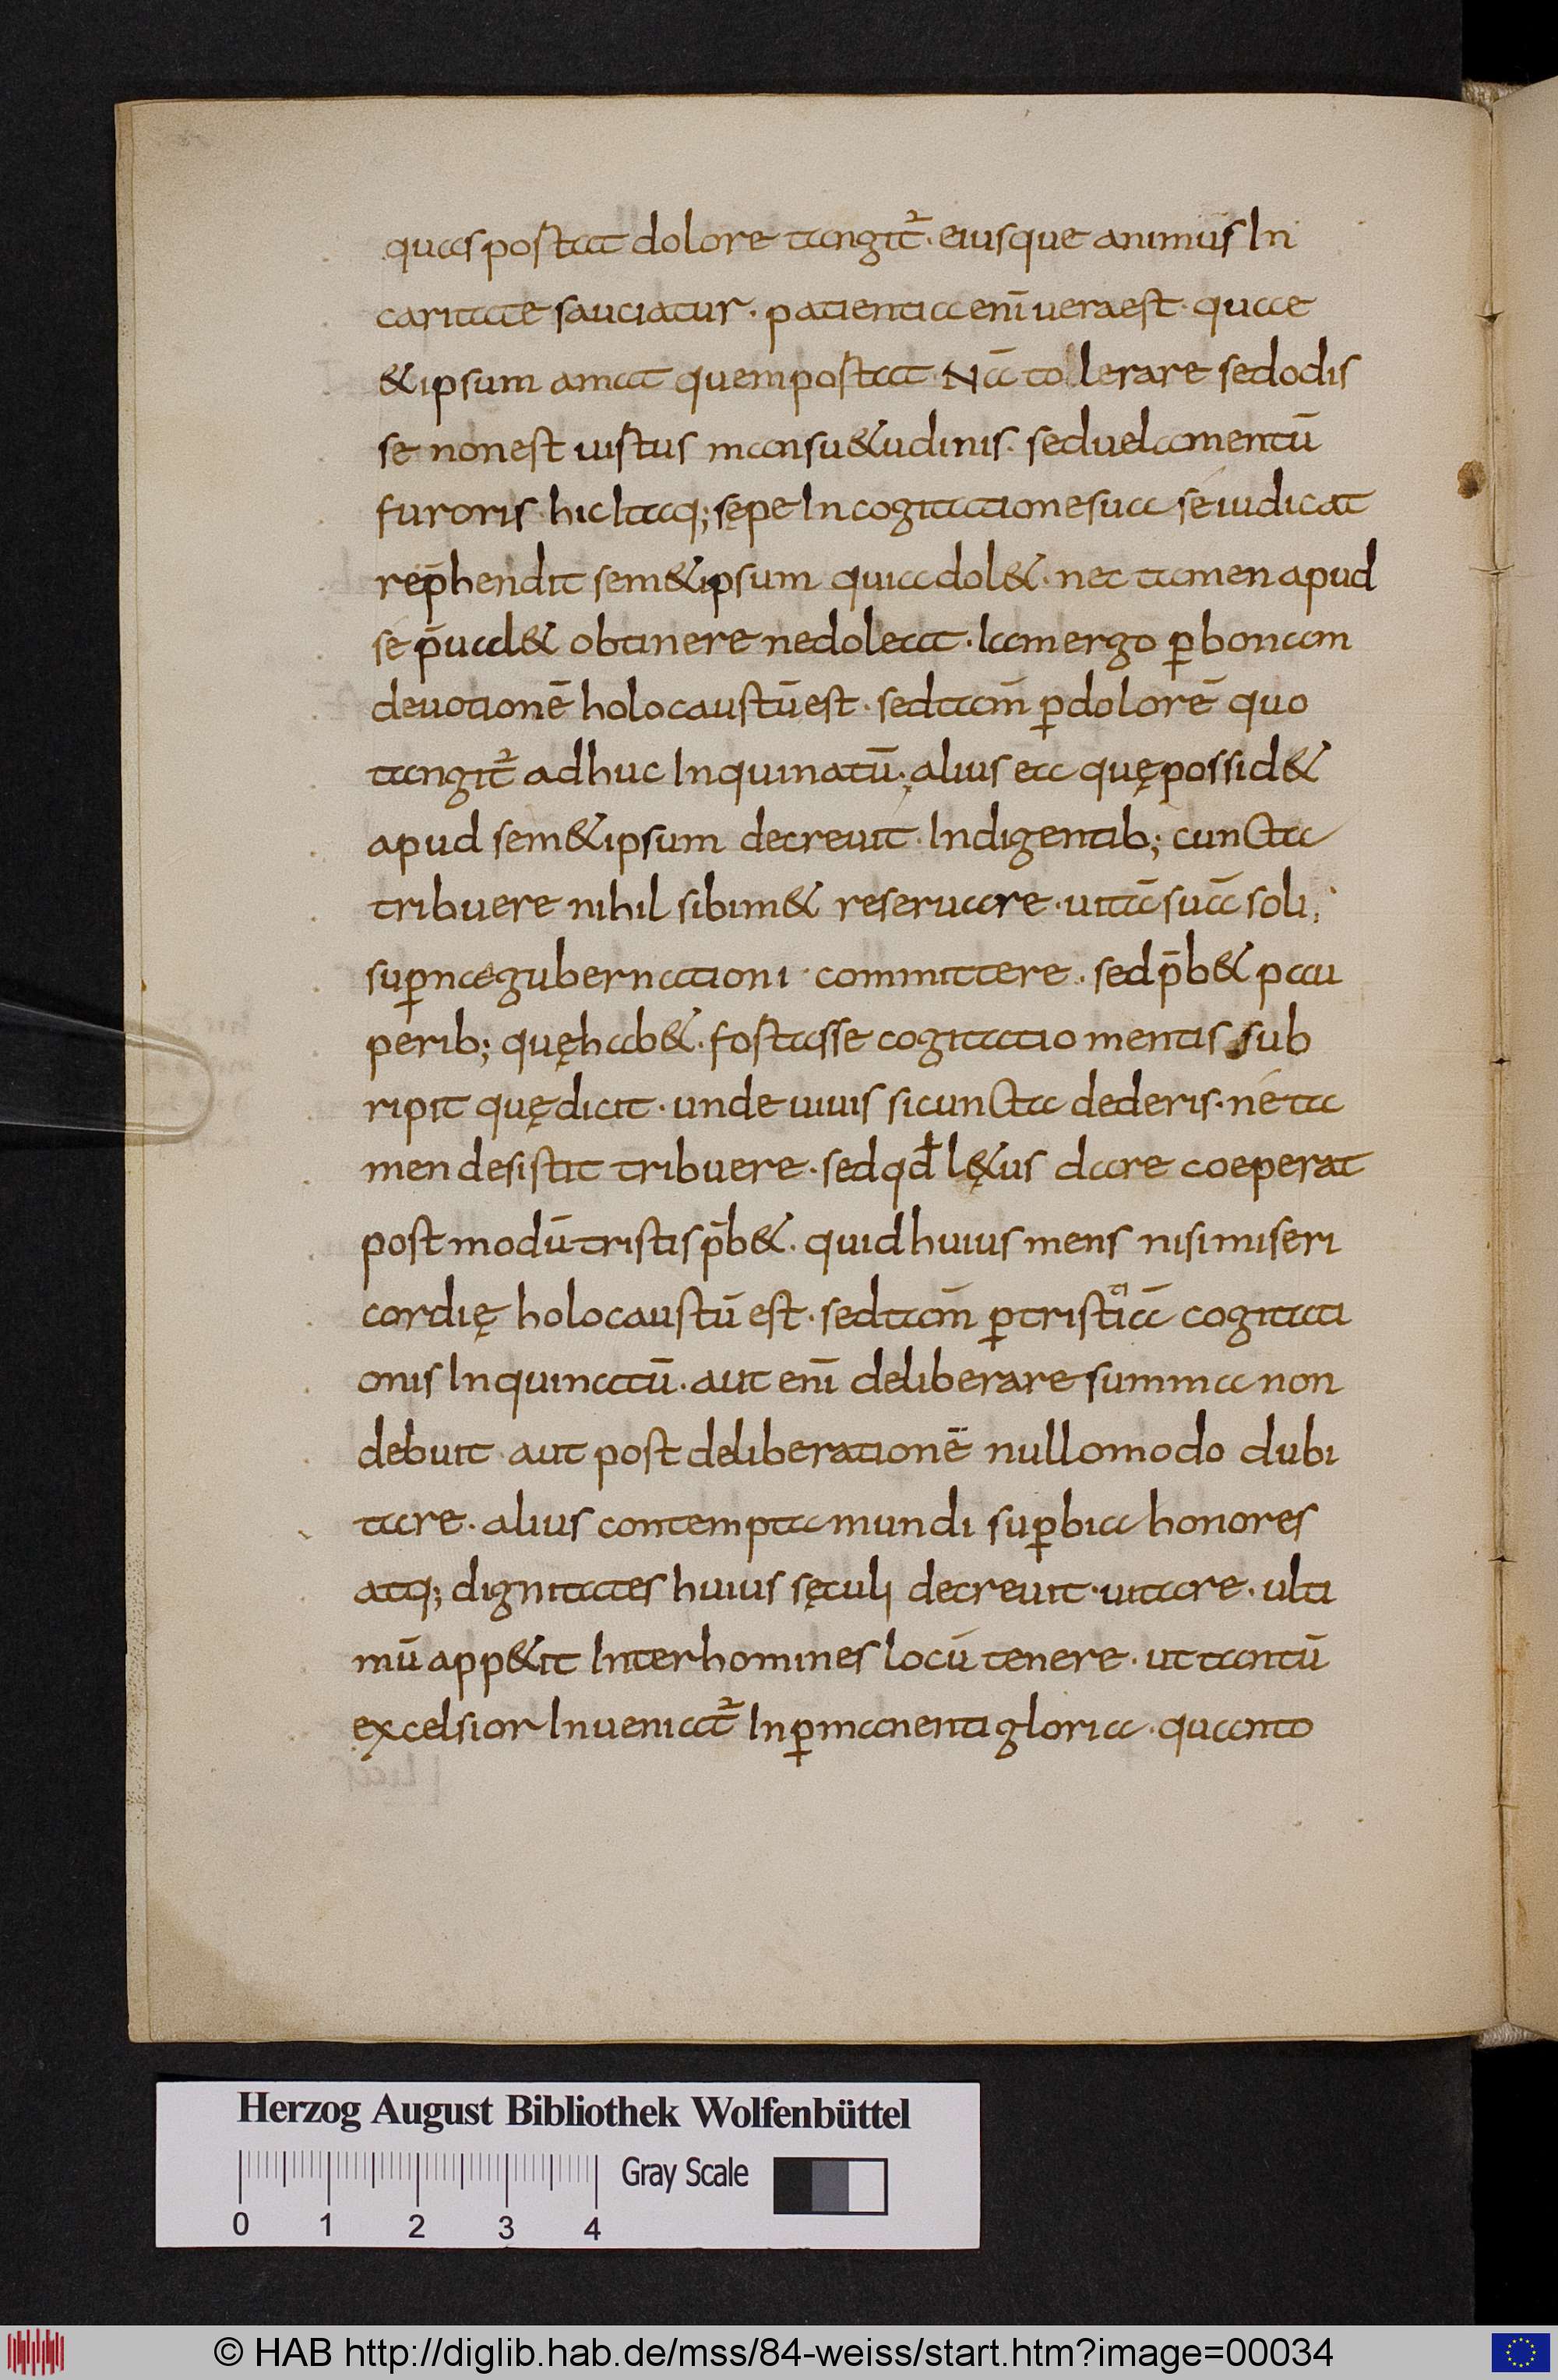 quas postat dolore tangit᷑· eiusque animus In
caritate sauciatur· patientia eni̅ uera est· quae
&ipsum amat quem postat· Na̅ tollerare sed odis
se non est uistus mansu&udinis· sed uelamentu̅
furoris· hic Itaq; sępe In cogitatione sua se iudicat
rep̅hendit sem&ipsum quia dol&· nec tamen apud
se p̅ual& obtinere ne doleat· Iam ergo ꝑ bonam
deuotione̅ holocaustu̅ est· sed tam̅ ꝑ dolore̅ quo
tangit᷑ adhuc Inquinatu̅· alius ea quę possid&
apud sem&ipsum decreuit· Indigentib; cuncta
tribuere nihil sibim& reseruare· uita̅ sua̅ soli
suꝑnae gubernationi committere· sed p̅b& pau
perib; quę hab&· fostasse cogitatio mentis sub
ripit quę dicit· unde uiuis si cuncta dederis· ne ta
men desistit tribuere· sed qđ lę&us dare coeperat
post modu̅ tristis p̅b&· quid huius mens nisi miseri
cordię holocaustu̅ est· sed tam̅ ꝑ tristicia̅ cogitati
onis Inquinatu̅· aut eni̅ deliberare summa non
debuit aut post deliberatione̅ nullomodo dubi
tare· alius contempta mundi suꝑbia honores
atq; dignitates huius sęculi decreuit· uitare· ulti
mu̅ app&it Inter homines locu̅ tenere· ut tantu̅
excelsior Inueniat᷑ In ꝑmanenti gloria· quanto
Herzog August Bibliothek Wolfenbüttel
Gray Scale
0 1 2 3 4
© HAB http://diglib.hab.de/mss/84-weiss/start.htm?image=00034